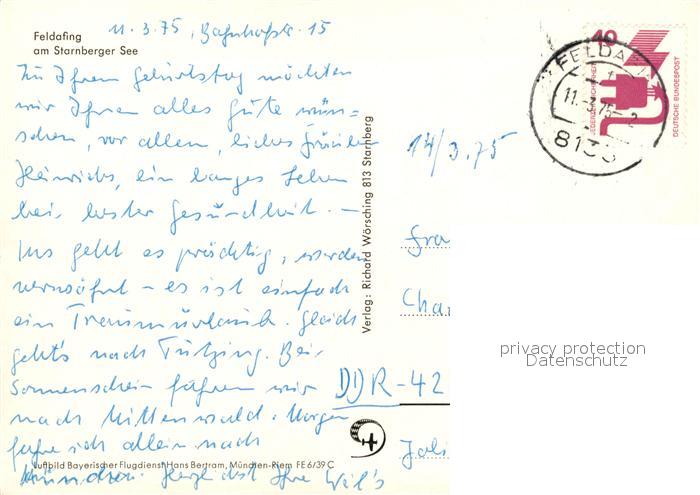 Feldafing
am Starnberger See
11.3.75, Bahnhofstr. 15
Zu Ihrem Geburtstag möchten
wir Ihnen alles Gute wün-
schen, vor allem, liebes Fräulein
Heinrichs, ein langes Leben
bei bester Gesundheit. —
Uns geht es prächtig, werden
verwöhnt – es ist einfach
ein Traumurlaub. Gleich
geht's nach Tutzing. Bei
Sonnenschein fahren wir
nach Mittenwald. Morgen
fahre ich allein nach
München. Herzl Ihre
Luftbild Bayerischer Flugdienst Hans Bertram, München-Riem FE 6/39 C
Verlag: Richard Wörsching 813 Starnberg
14/3.75
Frau
Char
DDR-42
FELDAFI
11.-3.75-
8133
40
JEDERZEIT SICHERHEIT
DEUTSCHE BUNDESPOST
privacy protection
Datenschutz